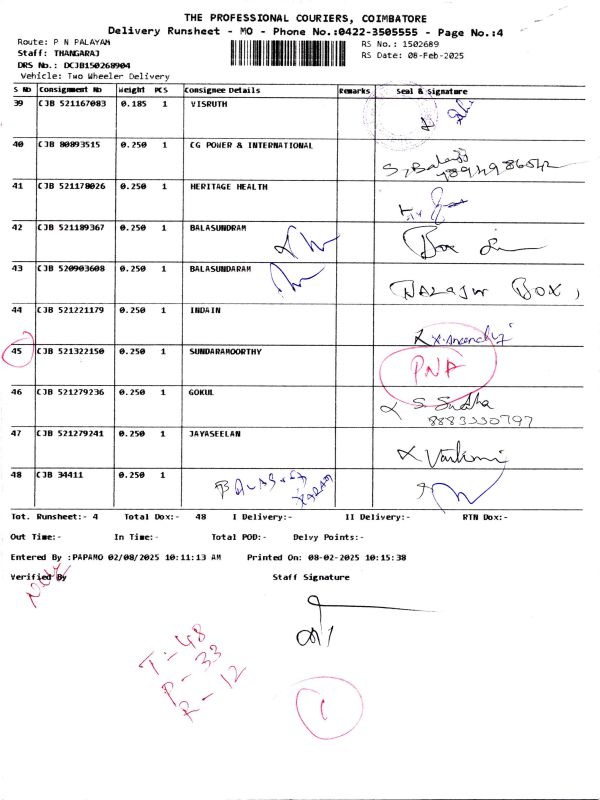 THE PROFESSIONAL COURIERS, COIMBATORE
Delivery Runsheet - MO - Phone No.:0422-3505555 - Page No.:4
Route: P N PALAYAM
RS No.: 1502689
Staff: THANGARAJ
RS Date: 08-Feb-2025
DRS No.: DCJB150268904
Vehicle: Two Wheeler Delivery
S No Consignment No Weight PCS Consignee Details Remarks Seal & Signature
39 CJB 521167083 0.185 1 VISRUTH
40 CJB 80893515 0.250 1 CG POWER & INTERNATIONAL
41 CJB 521178026 0.250 1 HERITAGE HEALTH
42 CJB 521189367 0.250 1 BALASUNDRAM Box
43 CJB 520903608 0.250 1 BALASUNDARAM BOX,
44 CJB 521221179 0.250 1 INDAIN
45 CJB 521322150 0.250 1 SUNDARAMOORTHY PNA
46 CJB 521279236 0.250 1 GOKUL S. Sudha
8883330797
47 CJB 521279241 0.250 1 JAYASEELAN
48 CJB 34411 0.250 1
Tot. Runsheet:- 4 Total Dox:- 48 I Delivery:- II Delivery:- RTN Dox:-
Out Time:- In Time:- Total POD:- Delvy Points:-
Entered By :PAPAMO 02/08/2025 10:11:13 AM Printed On: 08-02-2025 10:15:38
Verified By Staff Signature
T - 48
P - 33
R - 12
1